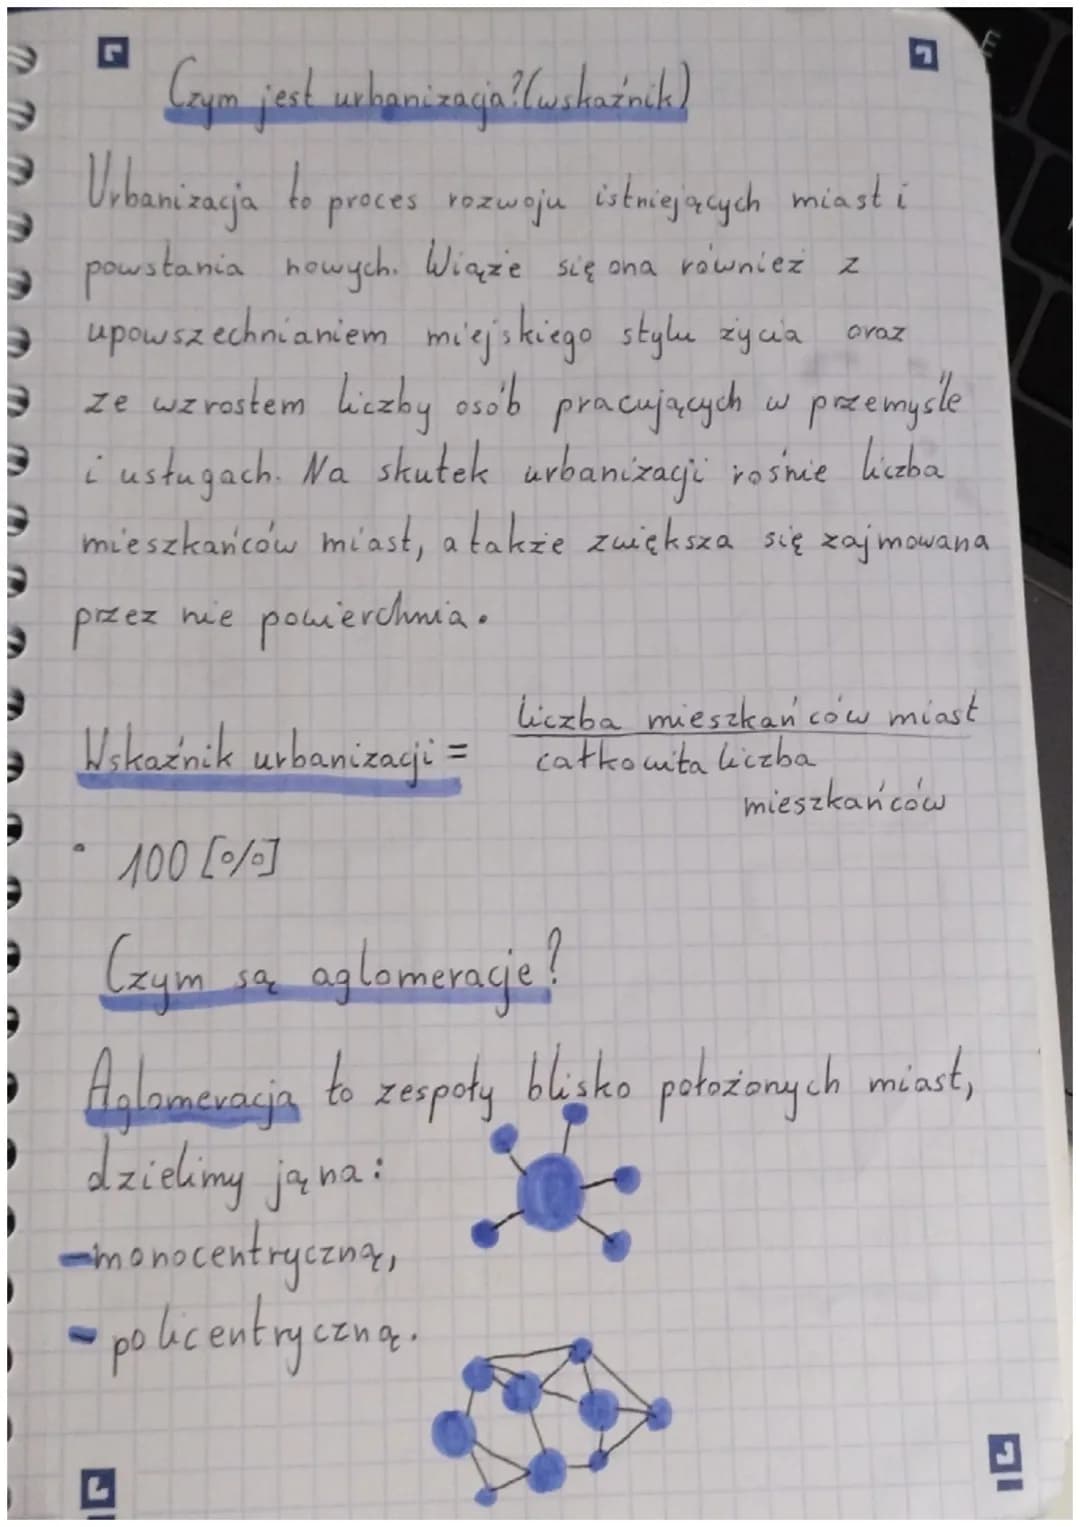 Czym jest urbanizacja?(wskaźnik)
Urbanizacja to proces rozwoju istniejących miast i
powstania nowych. Wiąże się ona również z
upowszechnianiem miejskiego stylu życia oraz
ze wzrostem liczby osób pracujących w przemyśle
i usługach. Na skutek urbanizacji rośnie liczba
mieszkańców miast, a także zwiększa się zajmowana
przez nie powierchnia.
Wskaźnik urbanizacji = liczba mieszkańców miast
całkowita liczba
mieszkańców
· 100 [%]
Czym są aglomeracje?
Aglomeracja to zespoły blisko położonych miast,
dzielimy ją na:
-monocentryczną,
- policentryczną.